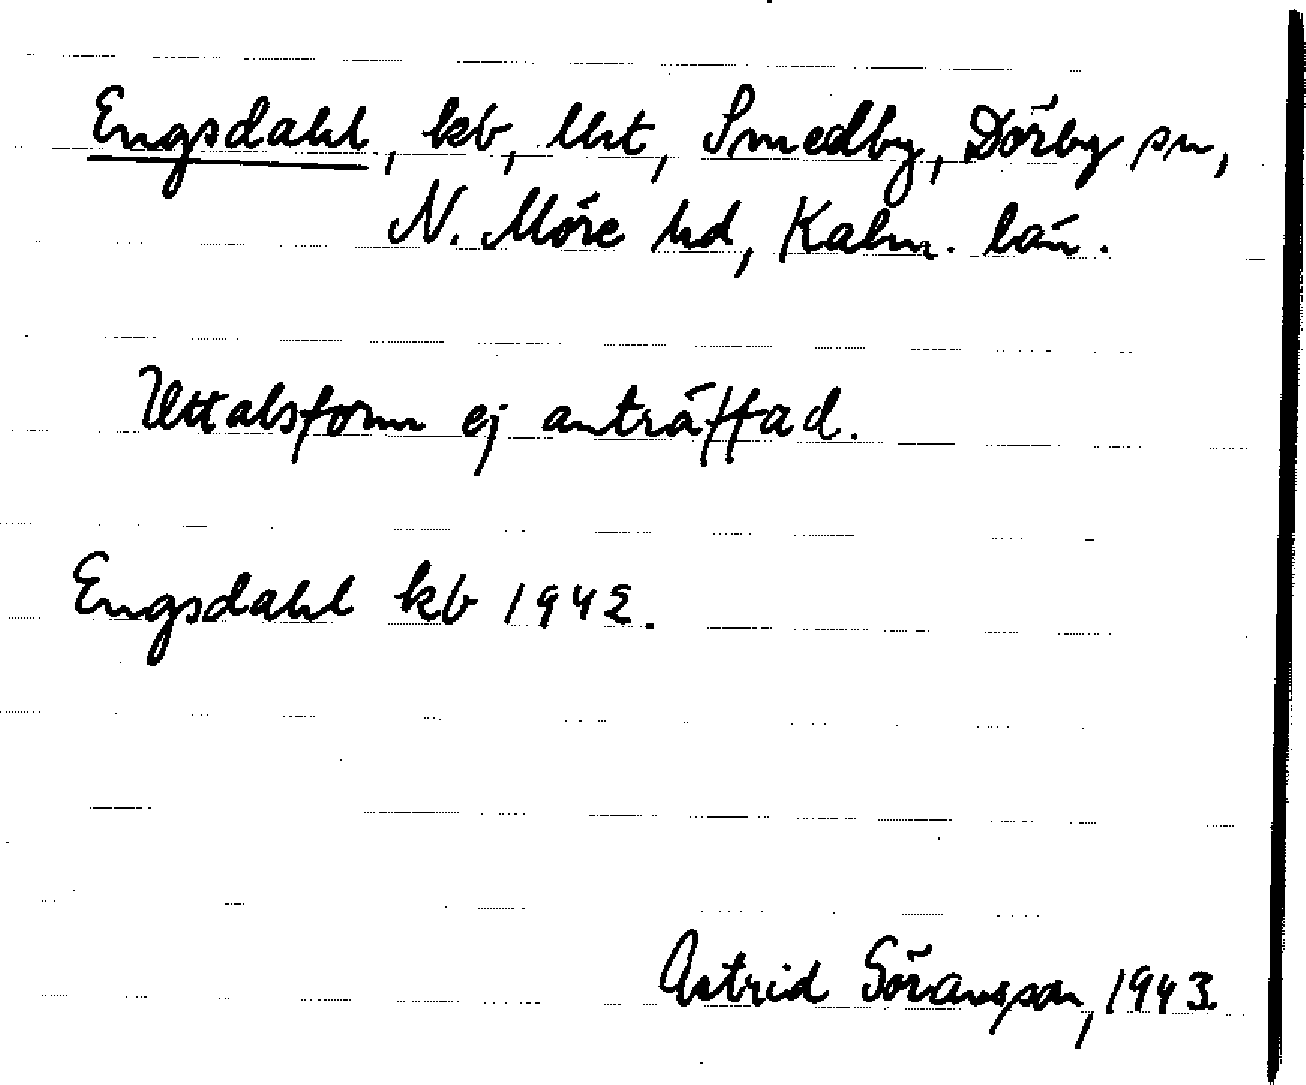 Engsdahl, kb, lht, Smedby, Dörby sn,
N. Möre hd, Kalm. län.
Uttalsform ej anträffad.
Engsdahl kb 1942.
Astrid Göransson, 1943.